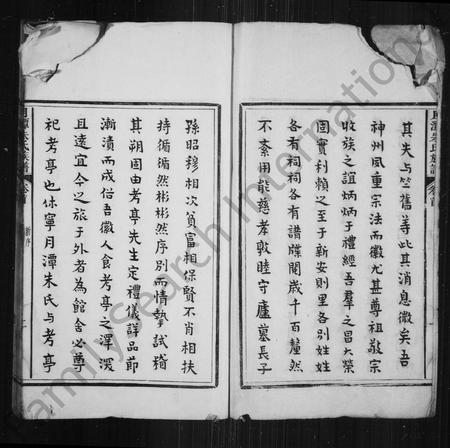 其失与竺舊等此其消息微矣吾
神州風重宗法而徽尤甚尊祖敬宗
收族之誼炳炳于禮經吾羣之昌大榮
固實利賴之至于新安則里各別姓姓
各有祠祠各有譜牒閱歲千百釐然
不紊用能慈孝敦睦守廬墓長子
孫昭穆相次貧富相保賢不肖相扶
持循循然彬彬然序別而情摯試稽
其朔固由考亭先生定禮儀詳品節
漸漬而成俗吾徽人食考亭之澤溪
且遠宜今之旅于外者為館舍必尊
祀考亭也休寧月潭朱氏与考亭
月潭朱氏族譜
卷首
FamilySearch International